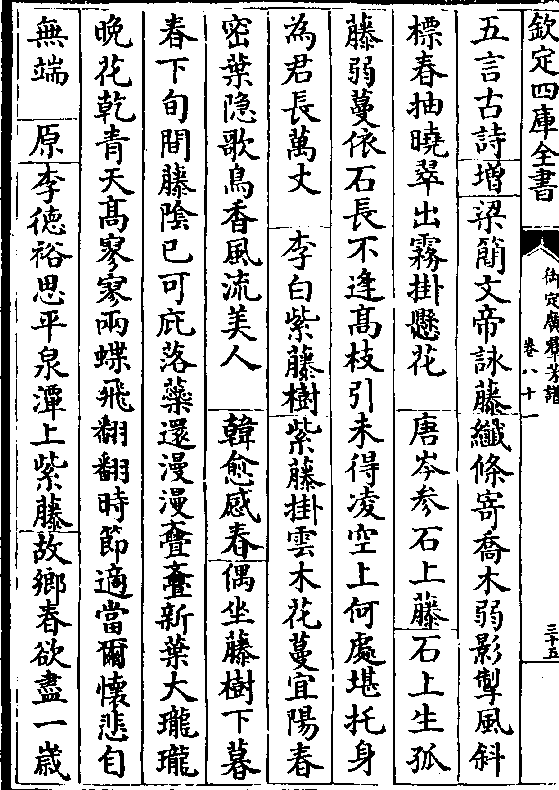 欽定四庫全書
御定廣羣芳譜
卷八十一
三十五
五言古詩增梁簡文帝詠藤纖條寄喬木弱影掣風斜
標春抽曉翠出霧掛懸花　唐岑參石上藤石上生孤
藤弱蔓依石長不逢髙枝引未得凌空上何處堪托身
為君長萬丈　李白紫藤樹紫藤掛雲木花蔓宜陽春
密葉隐歌鳥香風流美人　韓愈感春偶坐藤樹下暮
春下旬間藤陰已可庇落蘂還漫漫亹亹新葉大瓏瓏
晩花乾青天髙寥寥兩蝶飛翻翻時節適當爾懷悲自
無端　原李德裕思平泉潭上紫藤故鄉春欲盡一歲